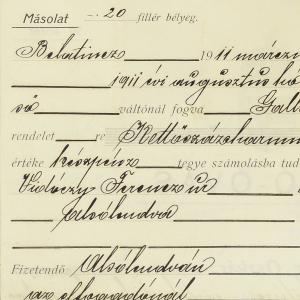 Másolat 20 fillér bélyeg.
Belatincz 1911 március
1911 évi augusztus hó
sá váltónál fogva Gall
rendelet re Kettőszázharmi
értéke készpénz tegye számolásba tud
Vidóczy Ferencz úr
Alsólendva
Fizetendő: Alsólendván
az elfogadónál